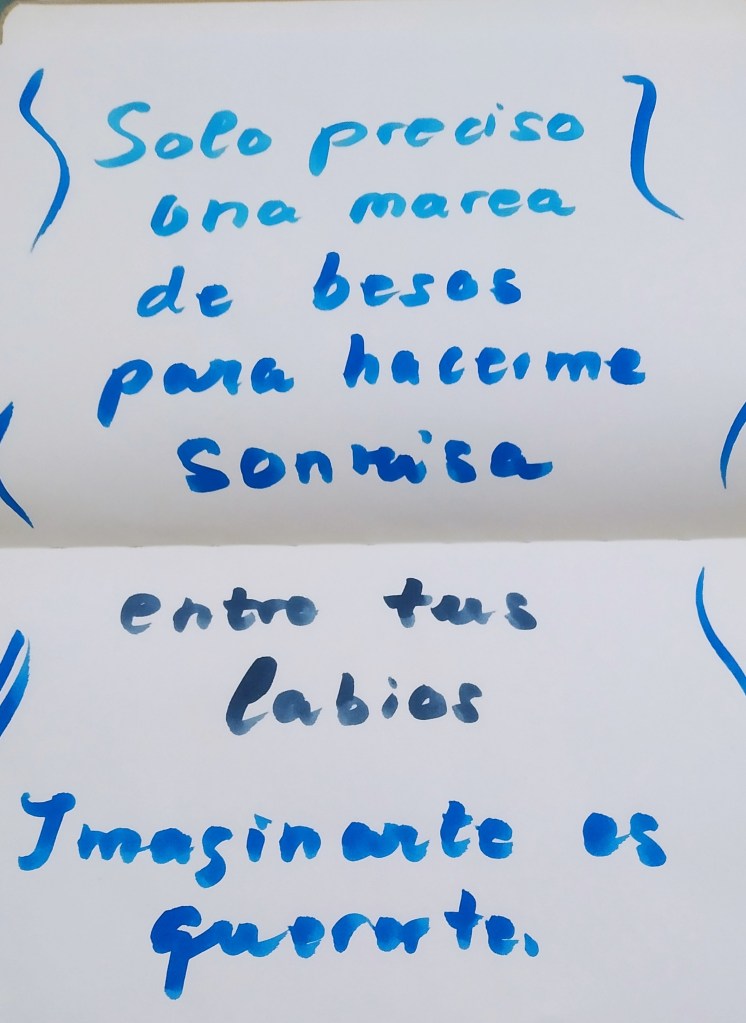 Solo preciso
una marea
de besos
para hacerme
sonreisa
entre tus
labios
Imaginarte es
quererte.